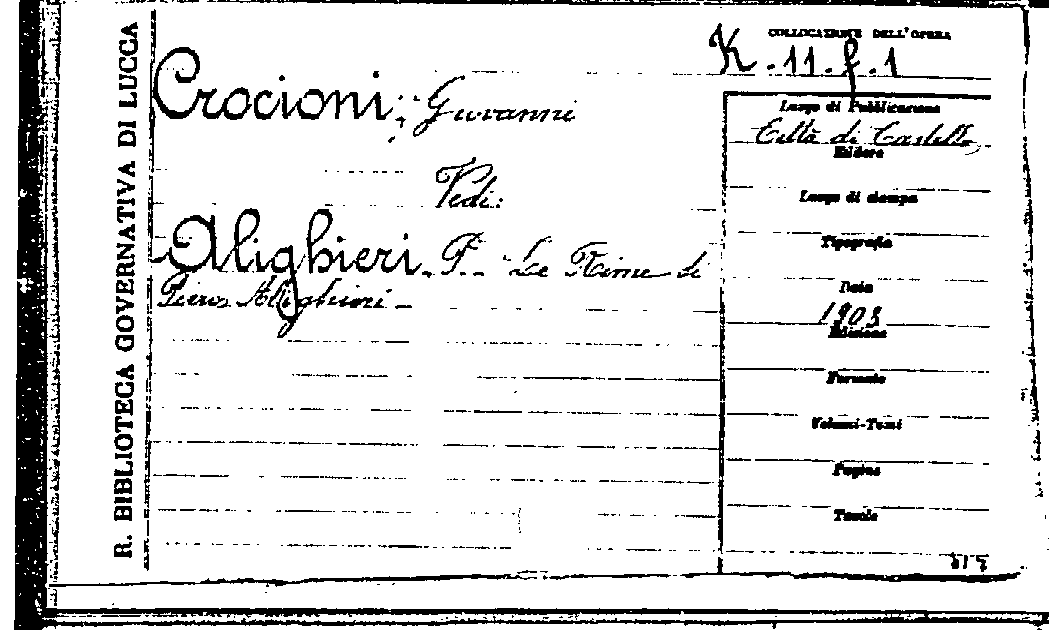 R. BIBLIOTECA GOVERNATIVA DI LUCCA
COLLOCAZIONE DELL'OPERA
K. 11. f. 1
Crocioni, Giovanni
Vedi:
Alighieri P. Le Rime di
Piero Alighieri
Luogo di Pubblicazione
Città di Castello
Editore
Luogo di stampa
Tipografia
Data
1903
Edizione
Formato
Volumi-Tomi
Pagine
Tavole